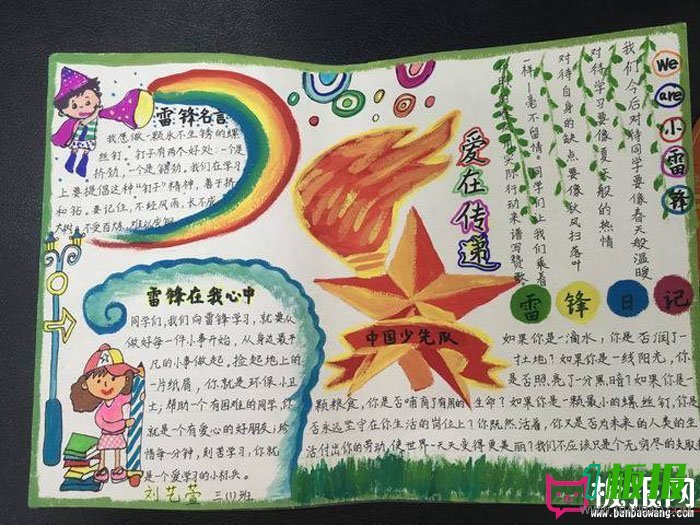 雷锋名言
我愿做一颗永不生锈的螺
丝钉。钉子有两个好处:一个是
挤劲,一个是钻劲,我们在学习
上要提倡这种"钉子"精神,善于挤
和钻。要记住,不经风雨,长不成
大树;不受百炼,难以成钢
雷锋在我心中
同学们,我们向雷锋学习,就要从
做好每一件小事开始,从身边最平
凡的小事做起,捡起地上的
一片纸屑,你就是环保小卫
士;帮助一个有困难的同学,你
就是一个有爱心的好朋友;珍
惜每一分钟,刻苦学习,你就
是一个爱学习的小标兵。
三(1)班
爱在传递
中国少先队
We are 小雷锋
我们今后对待同学要像春天般温暖
对待学习要像夏天般的热情
对待自身的缺点要像秋风扫落叶
一样一毫不留情。同学们让我们乘着
实际行动来谱写赞歌
雷锋日记
如果你是一滴水,你是否润了一
寸土地?如果你是一线阳光,你
是否照亮了一分黑暗?如果你是一
颗粮食,你是否哺育了有用的生命?如果你是一颗最小的螺丝钉,你是
否永远坚守在你生活的岗位上?你既然活着,你又是否为未来的人类的生
活付出你的劳动,使世界一天天变得更美丽?我们不应该只是个无穷尽的支取
板报网
www.banbaowang.com